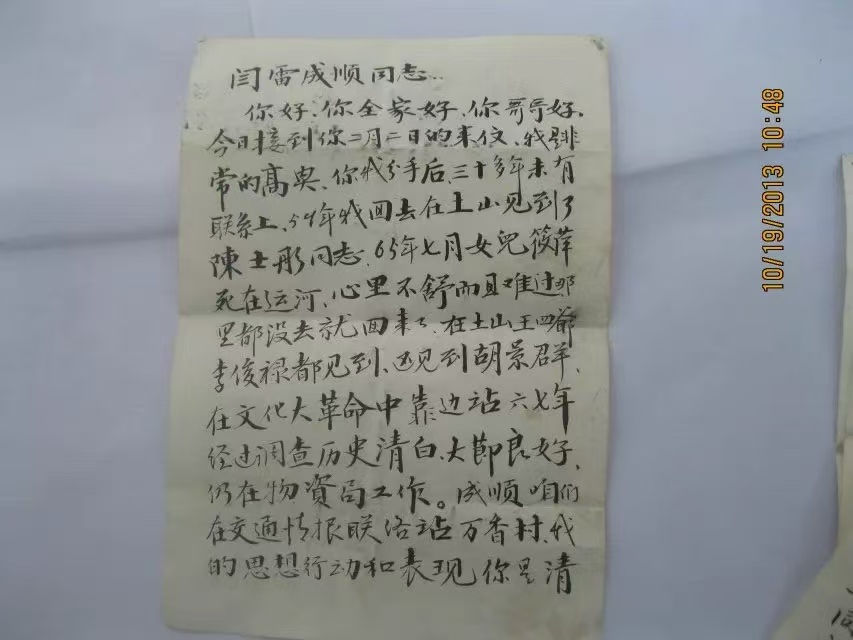 闫雷成顺同志…
你好、你全家好、你哥哥好.
今日接到你二月二日的来仪、我非
常的高兴、你我分手后、三十多年未有
联系上、59年我回去在土山见到了
陳士彤同志、65年七月女兒筱萍
死在运河、心里不舒而且难过那
里都没去就回来了、在土山王四爺
李俊禄都见到、还见到胡景群、
在文化大革命中靠边站六七年
经过调查历史清白、大節良好、
仍在物資局工作。成顺咱们
在交通情报联络站万香村、我
的思想行动和表现你是清
10/19/2013 10:48